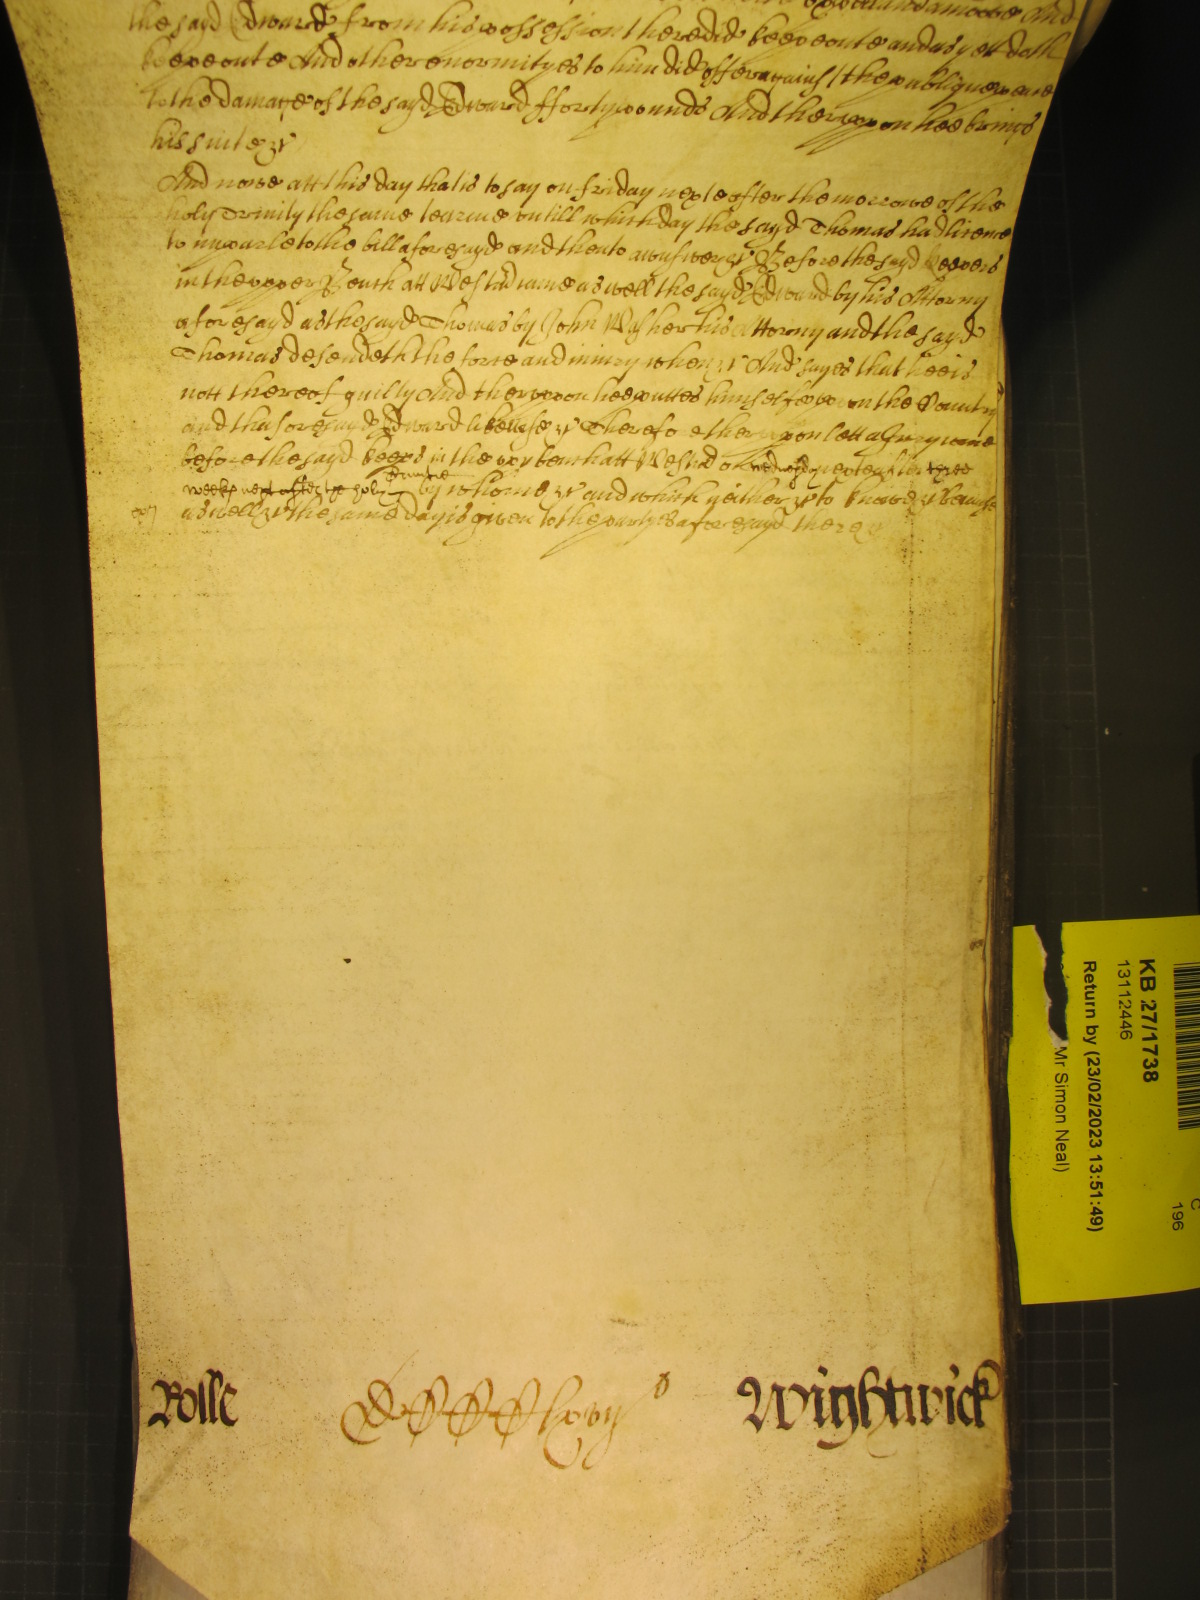 the sayd Edward from his possession there did keepe oute and as yett doth
keepe oute And other enormityes to him did offer against the publique peace
To the damage of the sayd Edward ffortypounds And therupon hee brings
his suite &c
And nowe att this day that is to say on friday nexte after the morrowe of the
holy Trinity the same tearme untill which day the sayd Thomas had licence
to imparle to the bill aforesayd and then to answer &c Before the sayd Keepers
in the upper Bench att Westm came aswell the sayd Edward by his Attorny
aforesayd as the sayd Thomas by John Washer his Attorny and the sayd
Thomas defendeth the force and iniury when &c And sayes that hee is
nott thereof guilty And therupon hee puttes himselfe upon the Country
and the foresayd Edward likewise &c Therefore therupon lett a Jury come
before the sayd Keeps in the upp bench att Westm on wednesday next after three
weeks next after the holy Trinitie by whome &c and which neither &c to knowe &c because
aswell &c the same day is given to the partyes aforesayd there &c
Rolle
Wightwick
KB 27/1738
13112446
Return by (23/02/2023 13:51:49)
Mr Simon Neal)
C
196